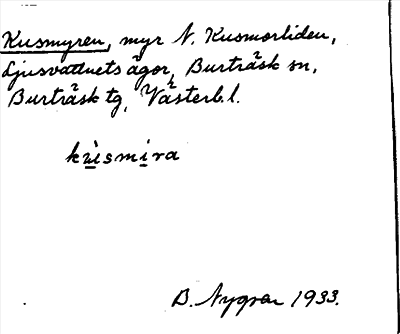 Kusmyren, myr N. Kusmorliden,
Ljusvattnets ägor, Burträsk sn,
Burträsk tg, Västerb. l.
kùsmira
B. Nygren 1933.